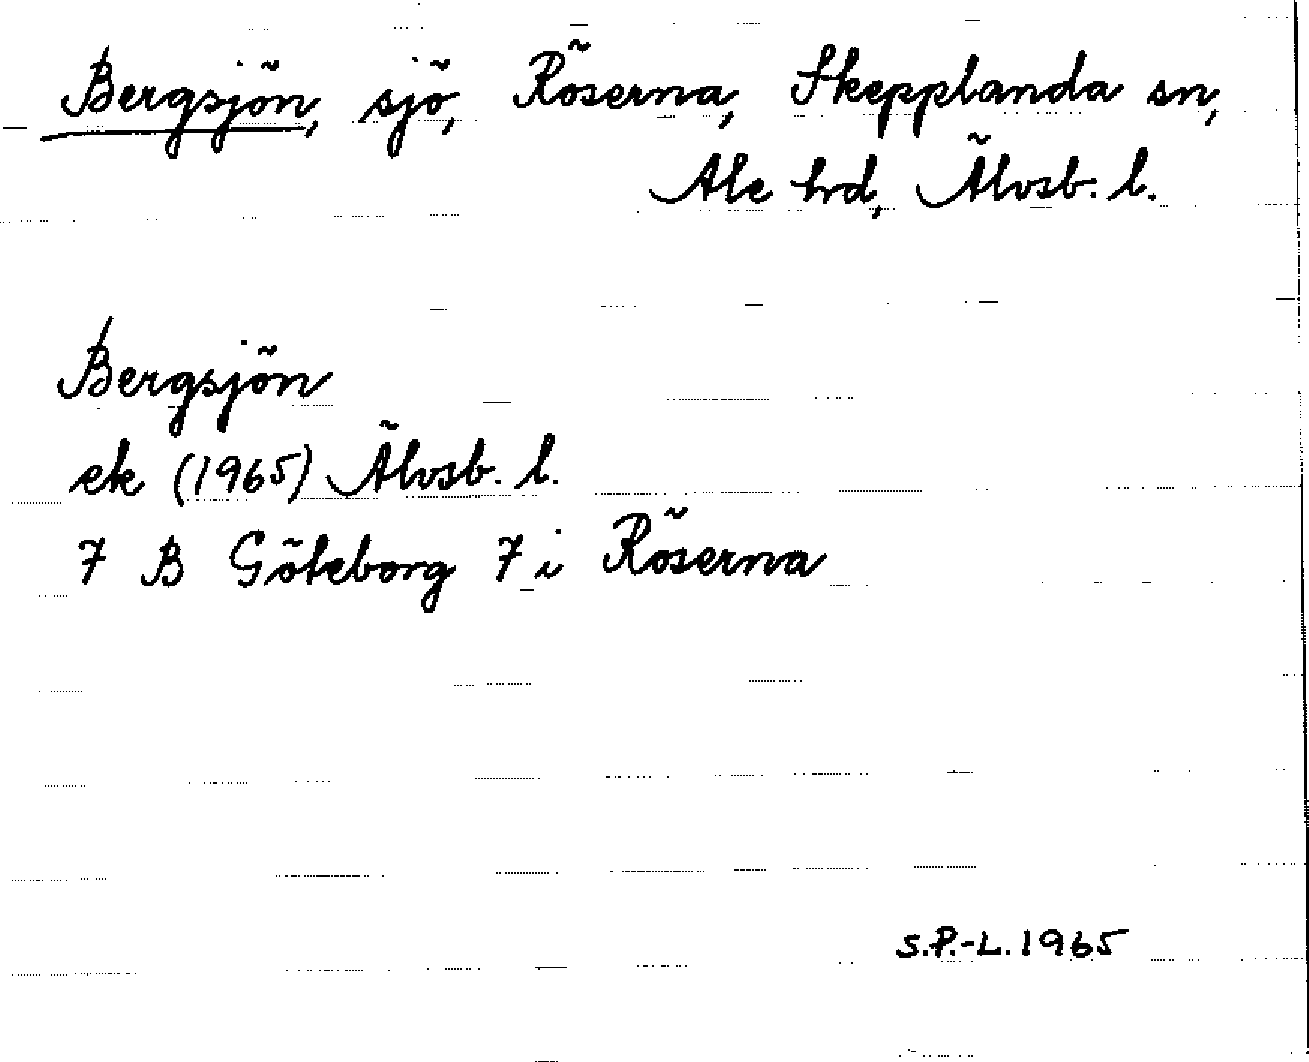 Bergsjön, sjö, Röserna, Skepplanda sn,
Ale hrd, Älvsb. l.
Bergsjön
ek (1965) Älvsb. l.
7 B Göteborg 7 i Röserna
S.P.-L. 1965